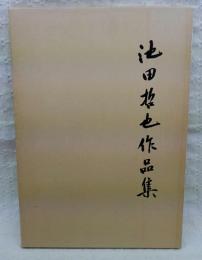 池田哲也作品集